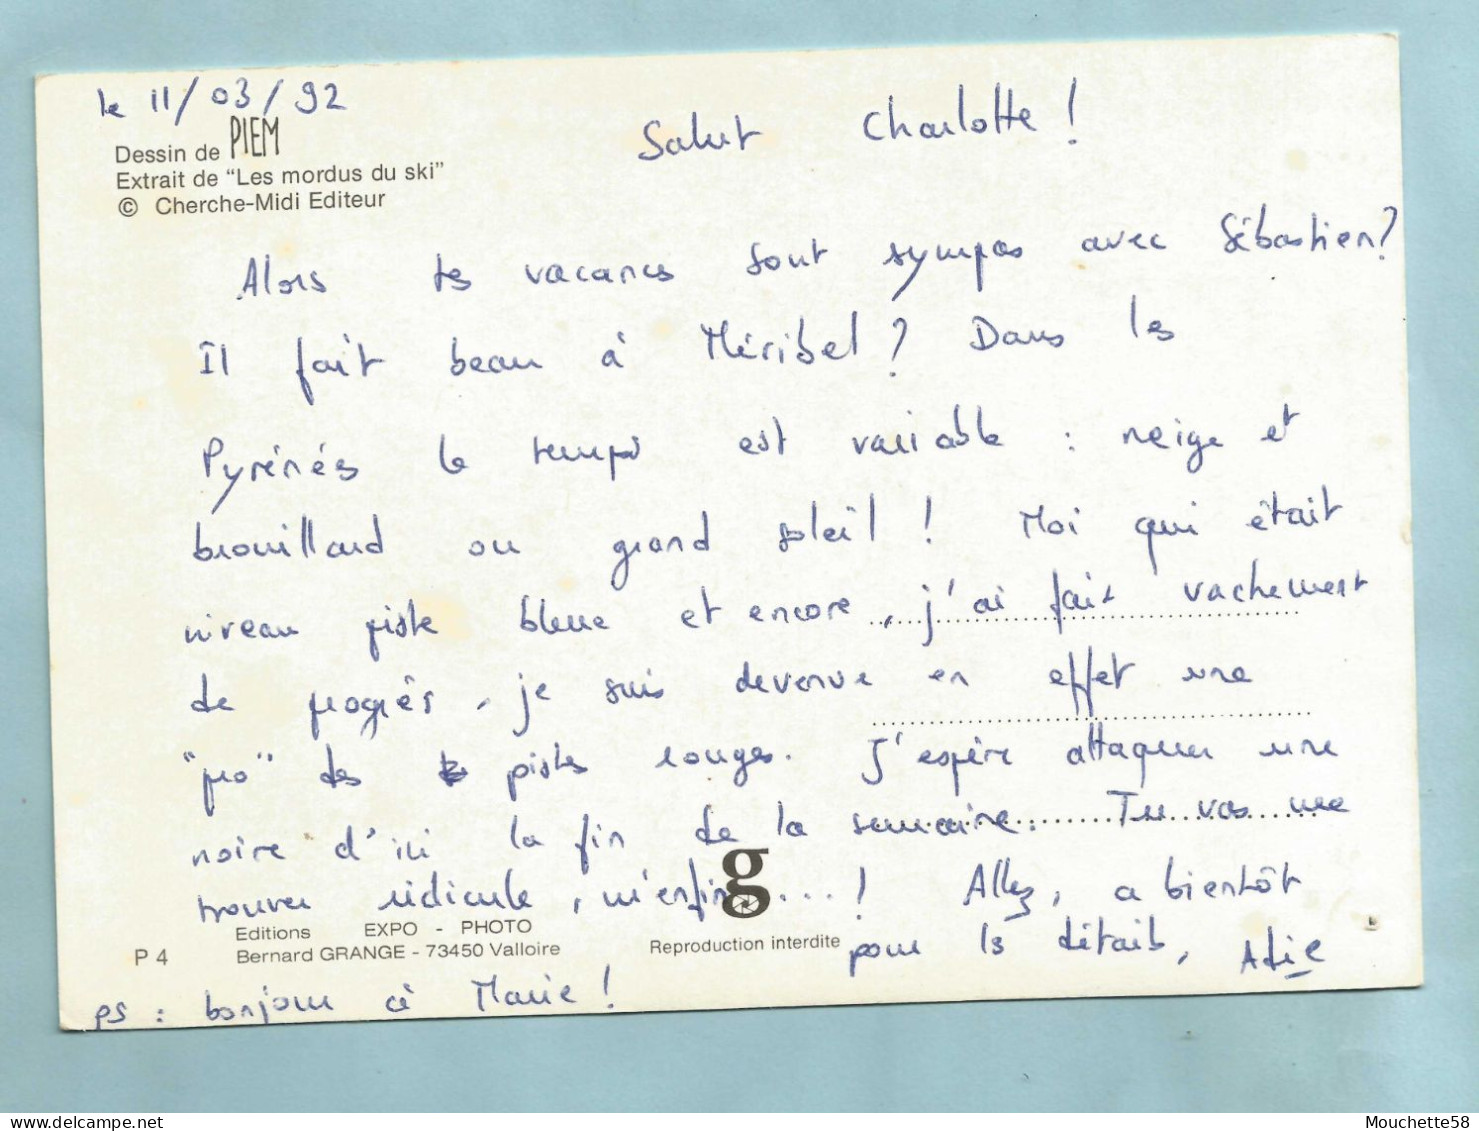 le 11/03/92
Dessin de PIEM
Extrait de "Les mordus du ski"
© Cherche-Midi Editeur
Salut Charlotte !
Alors tes vacances sont sympas avec Sébastien ?
Il fait beau à Méribel ? Dans les
Pyrénées le temps est variable : neige et
brouillard ou grand soleil ! Moi qui était
niveau piste bleue et encore, j'ai fait vachement
de progrès, je suis devenue en effet une
"pro" des pistes rouges. J'espère attaquer une
noire d'ici la fin de la semaine. Tu vas me
trouver ridicule, m'enfin....!
Allez, a bientôt
pour ls détails,
g
Editions EXPO - PHOTO
P 4 Bernard GRANGE - 73450 Valloire
Reproduction interdite
ps : bonjour à Marie !
Mouchette58